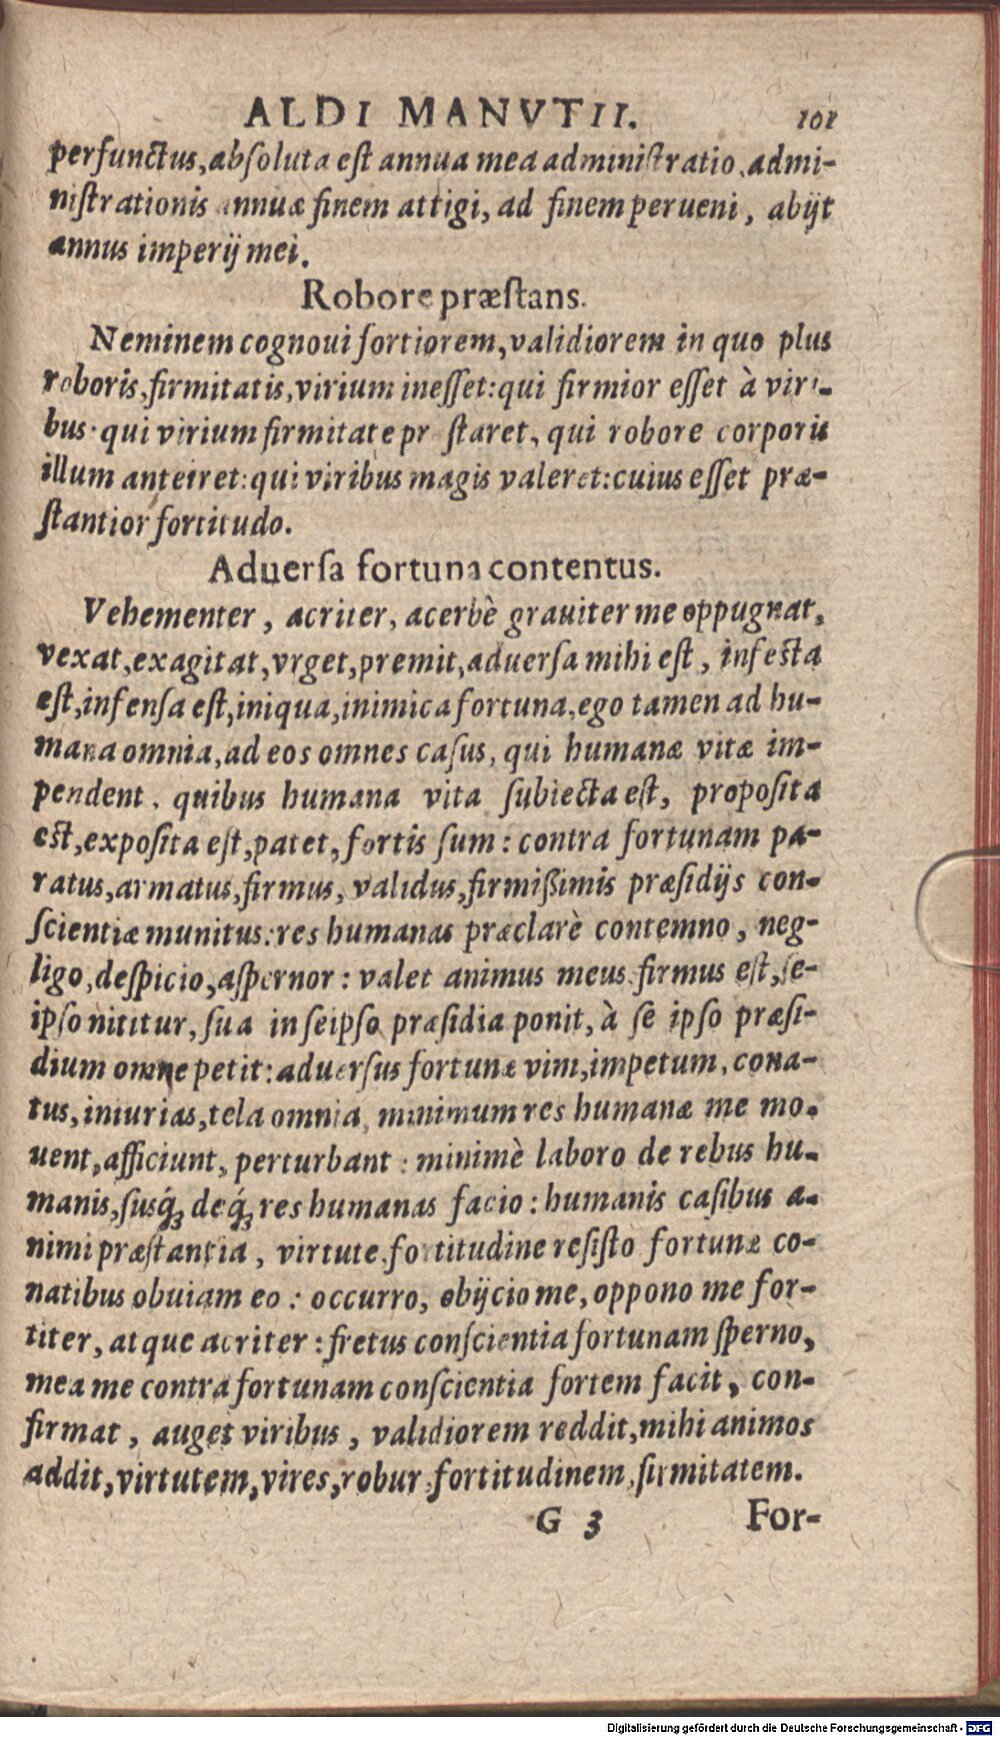 ALDI MANVTII. 101
perfunctus, absoluta est annua mea administratio, admi-
nistrationis annuæ finem attigi, ad finem perueni, abijt
annus imperij mei.
Robore præstans.
Neminem cognoui fortiorem, validiorem in quo plus
roboris, firmitatis, virium inesset: qui firmior esset à viri-
bus· qui virium firmitate præstaret, qui robore corporis
illum anteiret: qui viribus magis valeret: cuius esset præ-
stantior fortitudo.
Aduersa fortuna contentus.
Vehementer, acriter, acerbè grauiter me oppugnat,
vexat, exagitat, vrget, premit, aduersa mihi est, infecta
est, infensa est, iniqua, inimica fortuna, ego tamen ad hu-
mana omnia, ad eos omnes casus, qui humanæ vitæ im-
pendent, quibus humana vita subiecta est, proposita
est, exposita est, patet, fortis sum: contra fortunam pa-
ratus, armatus, firmus, validus, firmißimis præsidijs con-
scientiæ munitus: res humanas præclarè contemno, neg-
ligo, despicio, aspernor: valet animus meus firmus est, se-
ipso nititur, sua in seipso præsidia ponit, à se ipso præsi-
dium omne petit: aduersus fortunæ vim, impetum, cona-
tus, iniurias, tela omnia, minimum res humanæ me mo-
uent, afficiunt, perturbant: minimè laboro de rebus hu-
manis, susq́; deq́; res humanas facio: humanis casibus a-
nimi præstantia, virtute, fortitudine resisto fortunæ co-
natibus obuiam eo: occurro, obijcio me, oppono me for-
titer, atque acriter: fretus conscientia fortunam sperno,
mea me contra fortunam conscientia fortem facit, con-
firmat, auget viribus, validiorem reddit, mihi animos
addit, virtutem, vires, robur, fortitudinem, firmitatem.
G 3 For-
Digitalisierung gefördert durch die Deutsche Forschungsgemeinschaft - DFG